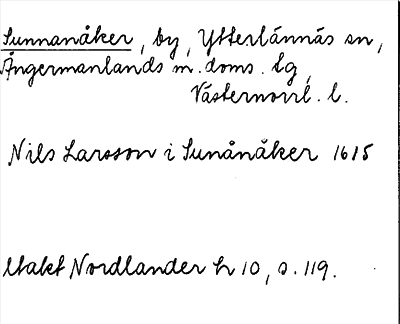 Sunnanåker, by, Ytterlännäs sn,
Ångermanlands m. doms. lg,
Västernorrl. l.
Nils Larsson i Sunånåker 1615
Utakt Nordlander h 10, s. 119.